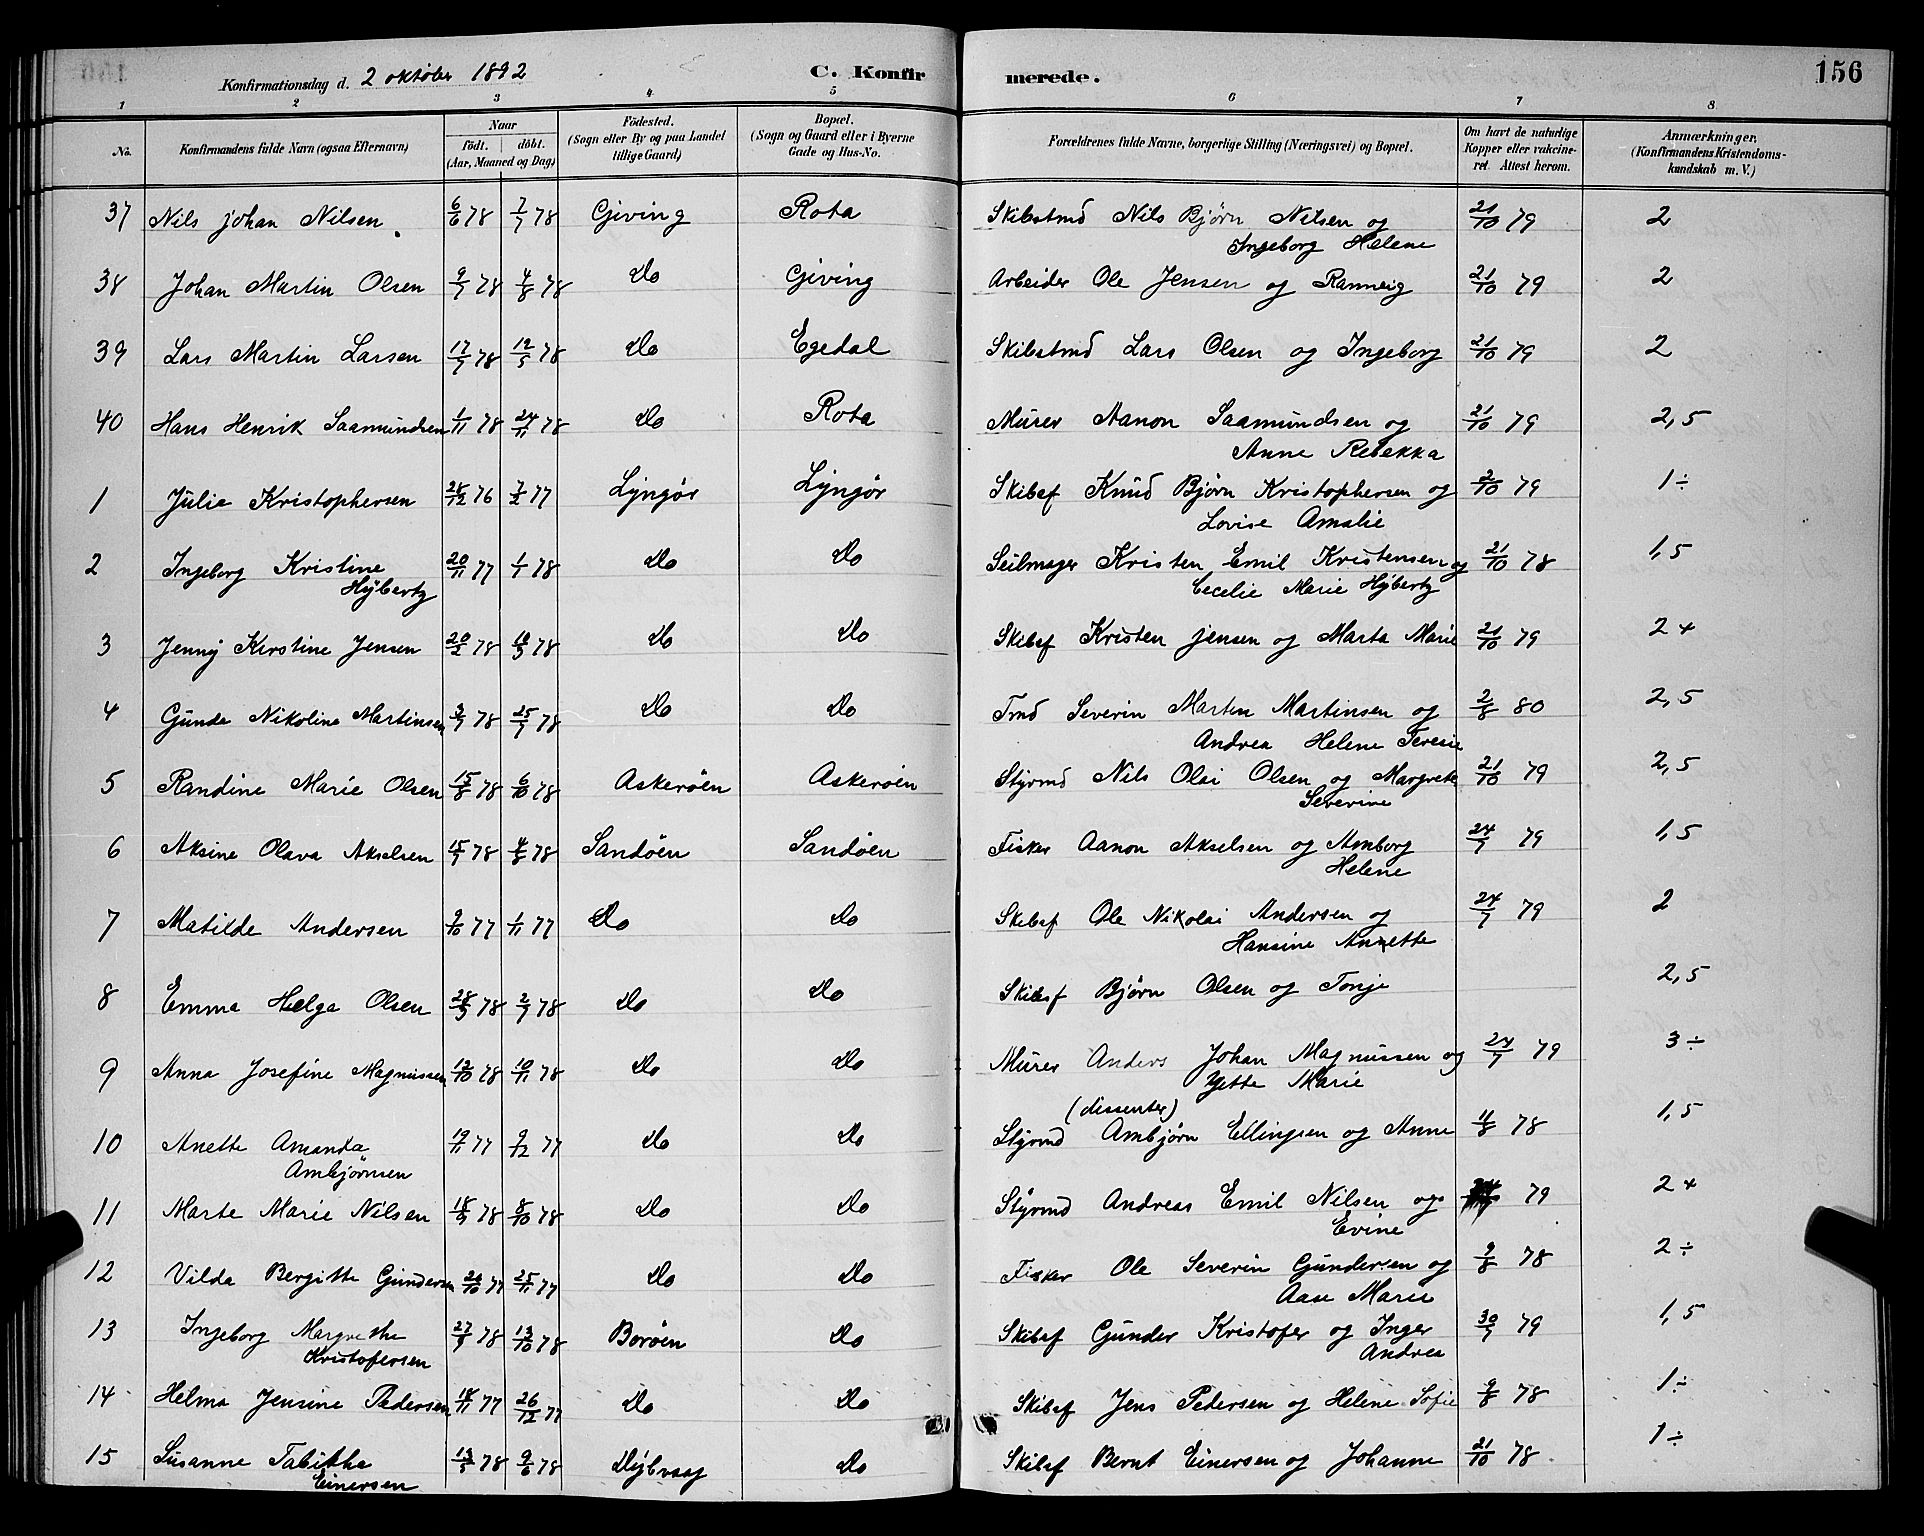 Konfirmationsdag d. 2 oktober 1892 C. Konfirmerede. 156
1 2 3 4 5 6 7 8
No. Konfirmandens fulde Navn (ogsaa Efternavn) Naar Födt. döbt. (Aar, Maaned og Dag) Födested. (Sogn eller By og paa Landet tillige Gaard) Bopæl. (Sogn og Gaard eller i Byerne Gade og Hus-No. Forældrenes fulde Navne, borgerlige Stilling (Næringsvei) og Bopæl. Om havt de naturlige Kopper eller vakcineret. Attest herom. Anmærkninger. (Konfirmandens Kristendomskundskab m. V.)
37 Nils Johan Nilsen 6/6 78 7/7 78 Gjving Rota Skibstmd Nils Bjørn Nilsen og 21/10 79 2
Ingeborg Helene
38 Johan Martin Olsen 9/7 78 4/8 78 Do Gjving Arbeider Ole Jensen og Ranneig 21/10 79 2
39 Lars Martin Larsen 17/7 78 12/5 78 Do Egedal Skibstmd Lars Olsen og Ingeborg 21/10 79 2
40 Hans Henrik Saamundsen 1/11 78 24/11 78 Do Rota Murer Aanon Saamundsen og 21/10 79 2,5
Anne Rebekka
1 Julie Kristophersen 28/12 76 7/2 77 Lyngør Lyngør Skibsf Knud Bjørn Kristophersen og 2/10 79 1 ÷
Lovise Amalie
2 Ingeborg Kristine 20/11 77 1/1 78 Do Do Seilmager Kristen Emil Kristensen og 21/10 78 1,5
Hybertz Cecelie Marie Hybertz
3 Jenny Kirstine Jensen 20/2 78 10/3 78 Do Do Skibsf Kristen Jensen og Marta Marie 21/10 79 2 +
4 Gunda Nikoline Martinsen 3/7 78 25/7 78 Do Do Tmd Severin Martin Martinsen og 2/8 80 2,5
Andrea Helene Teresie
5 Randine Marie Olsen 15/8 78 6/10 78 Askerøen Askerøen Styrmd Nils Olai Olsen og Margrete 21/10 79 2,5
Severine
6 Aksine Olava Akselsen 15/7 78 4/8 78 Sandøen Sandøen Fisker Aanon Akselsen og Amborg 24/7 79 1,5
Helene
7 Matilde Andersen 9/10 77 1/11 77 Do Do Skibsf Ole Nikolai Andersen og 24/7 79 2
Hansine Annette
8 Emma Helga Olsen 28/5 78 2/7 78 Do Do Skibsf Bjørn Olsen og Tonje 2,5
9 Anna Josefine Magnussen 12/10 78 10/11 78 Do Do Murer Anders Johan Magnussen og 24/7 79 3 ÷
Yette Marie
(dissenter)
10 Anette Amanda 19/11 77 9/12 77 Do Do Styrmd Ambjørn Ellingsen og Anne 11/8 78 1,5
Ambjørnsen
11 Marte Marie Nilsen 18/9 78 8/10 78 Do Do Styrmd Andreas Emil Nilsen og 79 2 +
Evine
12 Vilda Bergitte Gundersen 20/10 77 25/11 77 Do Do Fisker Ole Severin Gundersen og 9/8 78 2 ÷
Aase Marie
13 Ingeborg Margrethe 27/9 78 13/10 78 Borøen Do Skibsf Gunder Kristofer og Inger 30/7 79 1,5
Kristofersen Andrea
14 Helma Jensine Pedersen 18/11 77 26/12 77 Do Do Skibsf Jens Pedersen og Helene Sofie 9/8 78 1 ÷
15 Susanne Tabitha 13/5 78 9/6 78 Dybvaag Do Skibsf Bernt Einersen og Johanne 21/10 78 1 ÷
Einersen